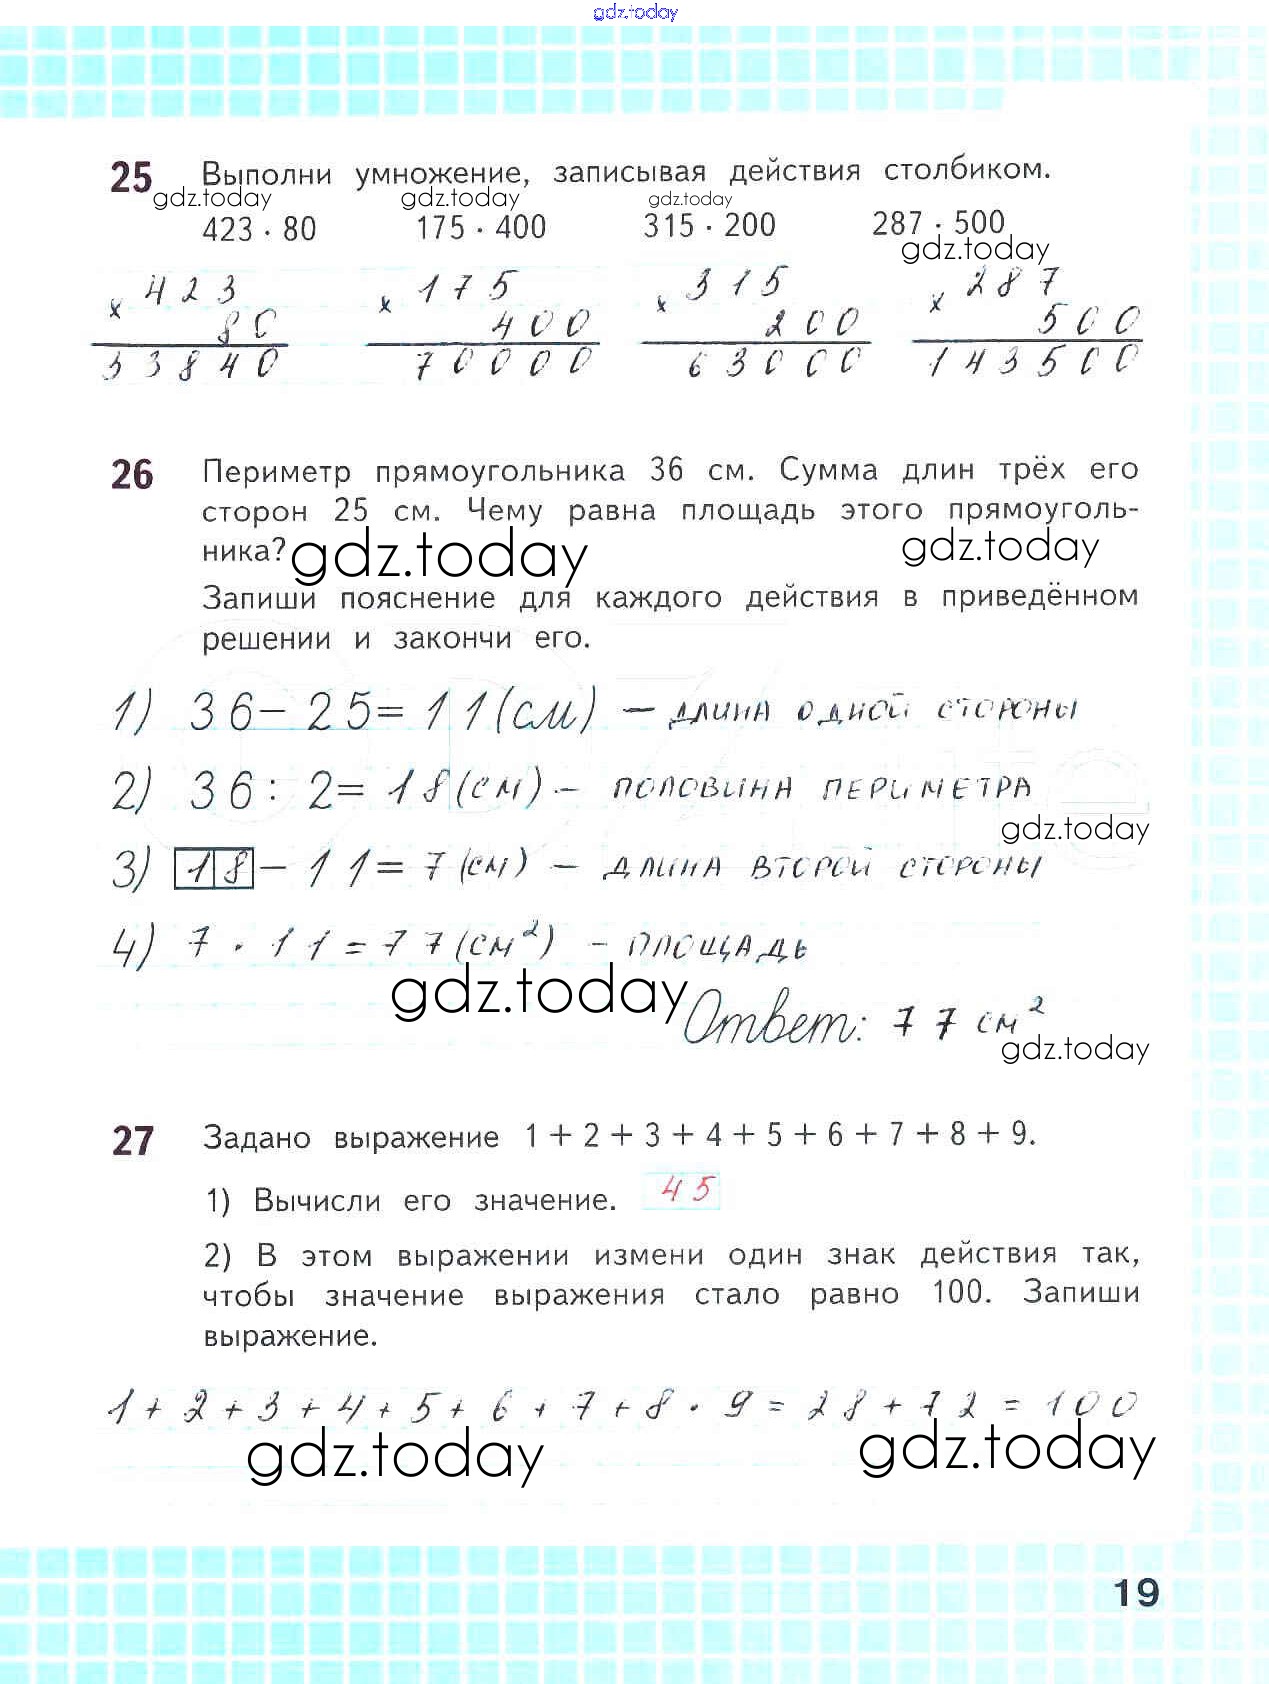 gdz.today
25 Выполни умножение, записывая действия столбиком.
gdz.today gdz.today gdz.today
423 · 80 175 · 400 315 · 200 287 · 500
gdz.today
× 423 × 175 × 315 × 287
80 400 200 500
33840 70000 63000 143500
26 Периметр прямоугольника 36 см. Сумма длин трёх его
сторон 25 см. Чему равна площадь этого прямоуголь-
ника?
gdz.today gdz.today
Запиши пояснение для каждого действия в приведённом
решении и закончи его.
1) 36 – 25 = 11 (см) – длина одной стороны
2) 36 : 2 = 18 (см) – половина периметра
gdz.today
3) 18 – 11 = 7 (см) – длина второй стороны
4) 7 · 11 = 77 (см²) – площадь
gdz.today
Ответ: 77 см²
gdz.today
27 Задано выражение 1 + 2 + 3 + 4 + 5 + 6 + 7 + 8 + 9.
1) Вычисли его значение. 45
2) В этом выражении измени один знак действия так,
чтобы значение выражения стало равно 100. Запиши
выражение.
1 + 2 + 3 + 4 + 5 + 6 + 7 + 8 · 9 = 28 + 72 = 100
gdz.today gdz.today
19